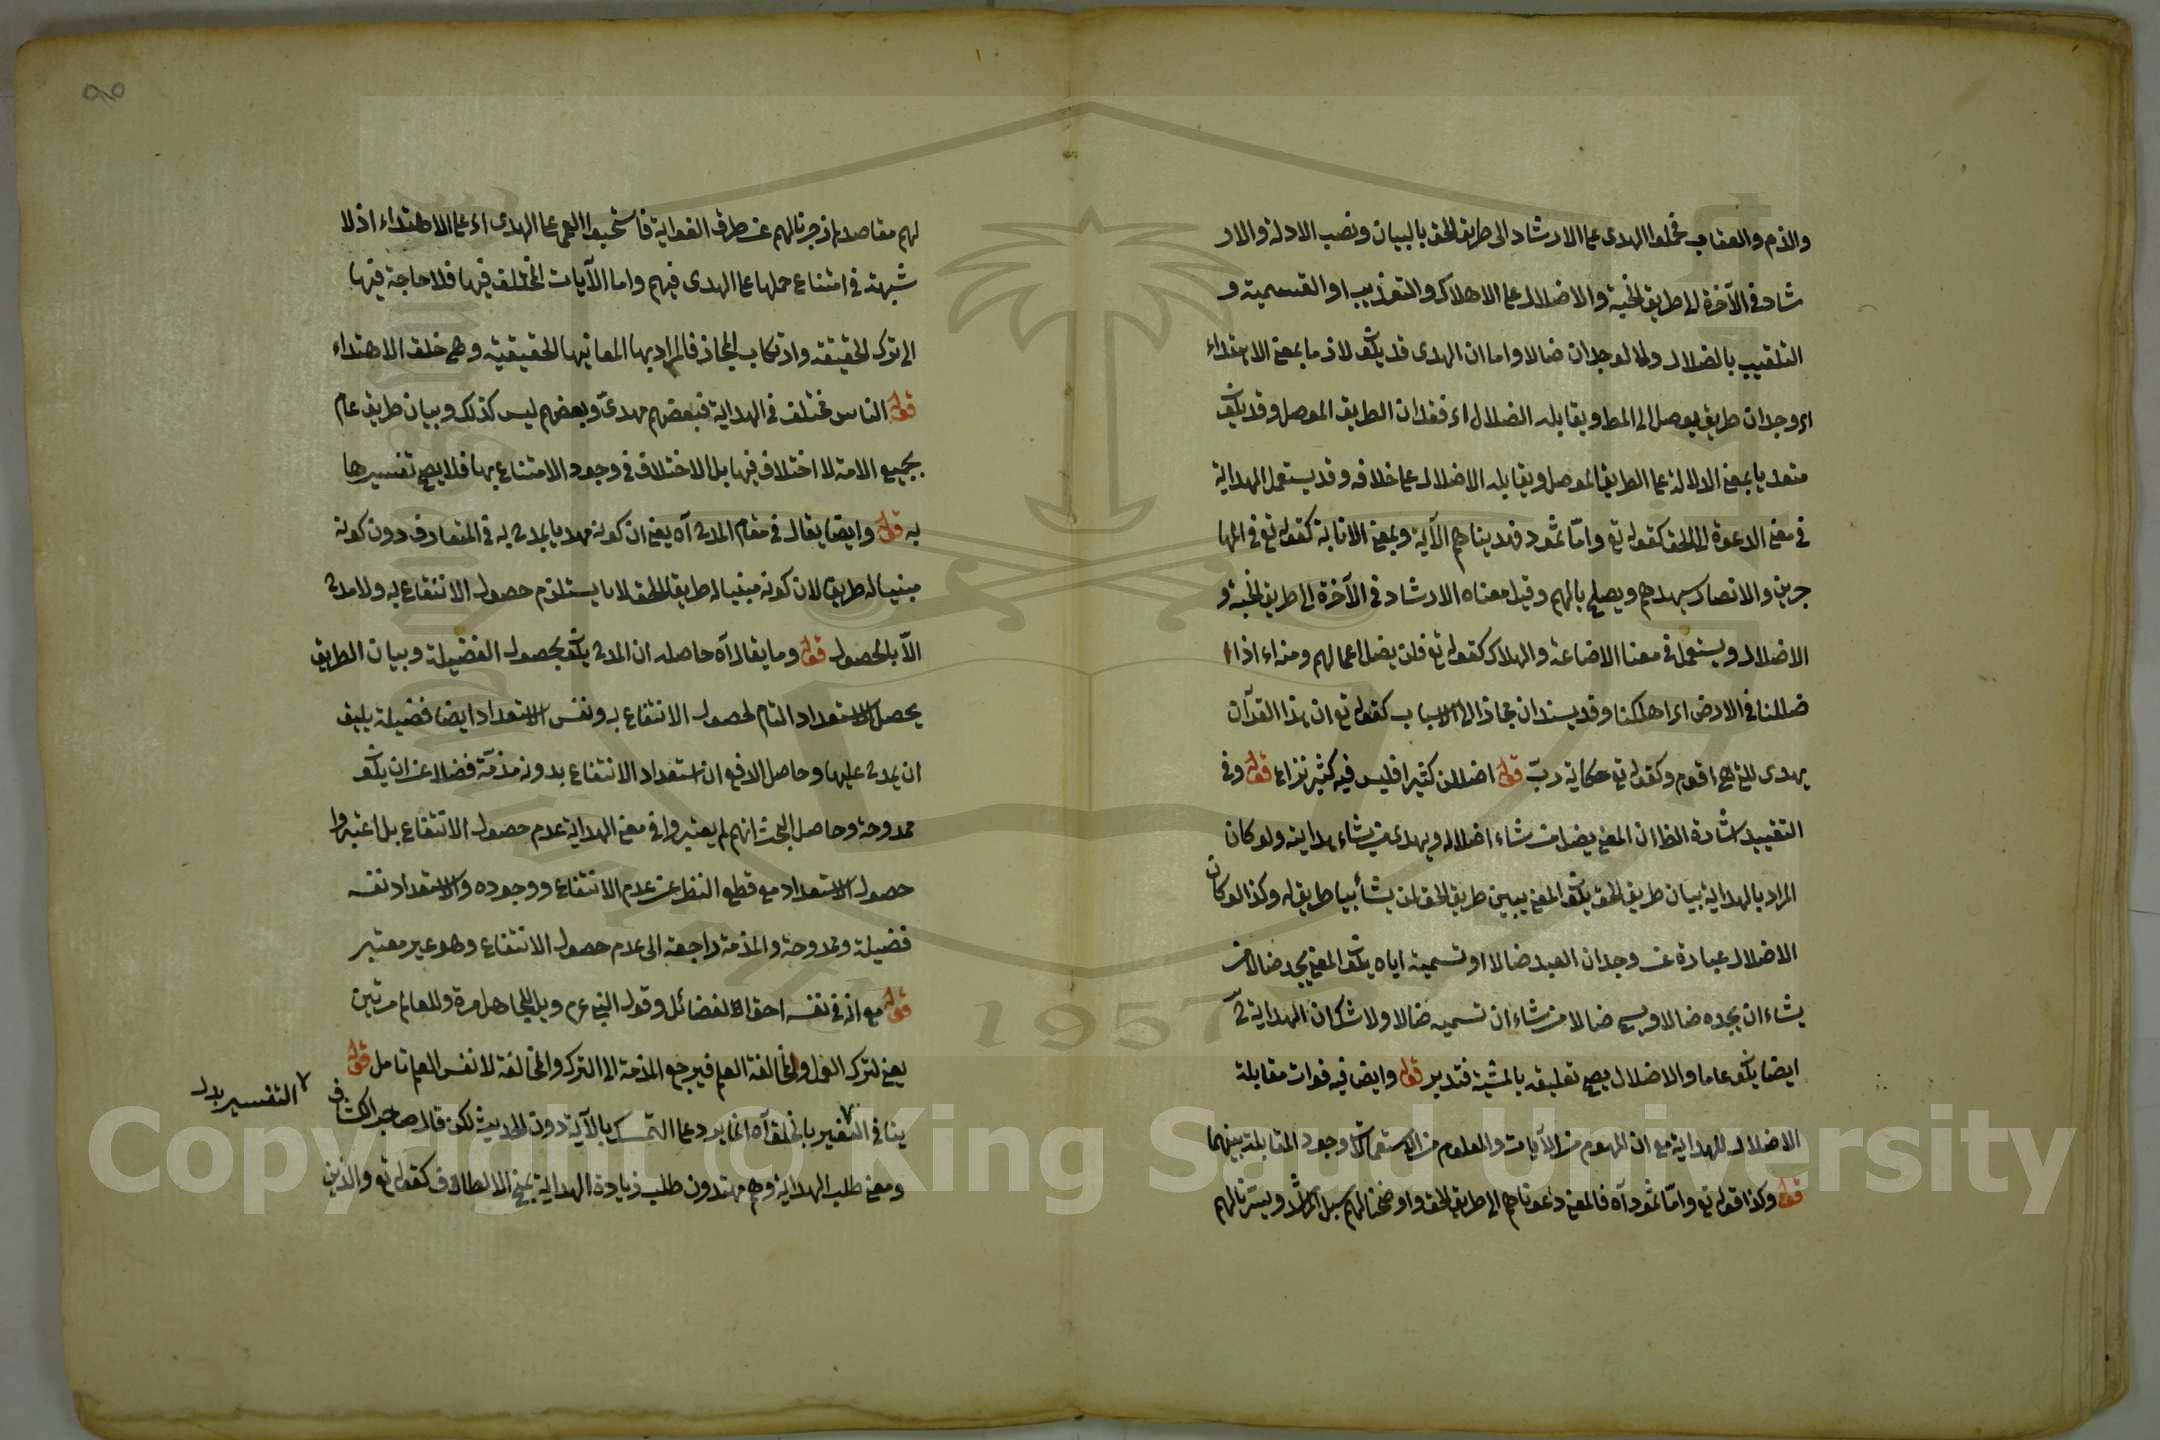 والذم والعقاب فحملوا الهدى على الارشاد الى طريق الحق بالبيان ونصب الادلة والار
شاد في الآخرة الى طريق الجنة والاضلال على الاهلاك والتعذيب او التسمية و
التلقيب بالضلال ولما لوجدان ضالا واما ان الهدى قد يكون لازما بمعنى الاهتداء
اى وجدان طريق يوصل الى المط ويقابله الضلال اى فقدان الطريق الموصل وقد يكون
متعديا بمعنى الدلالة على الطريق الموصل ويقابله الاضلال على خلافه وقد يستعمل الهداية
في معنى الدعوة الى الحق كقوله تع واما ثمود فهديناهم الآية وبمعنى الاثابة كقوله تع في المها
جرين والانصار سيهديهم ويصلح بالهم وقيل معناه الارشاد في الآخرة الى طريق الجنة و
الاضلال ويستعمل في معنا الاضاعة والهلاك كقوله تع فلن يضل اعمالهم ومنه اء اذا
ضللنا في الارض اى اهلكنا وقد يسندان مجازا الى الاسباب كقوله تع ان هذا القرآن
يهدى للتي هي اقوم وكقوله تع حكاية رب قوله اضللن كثيرا فليس فيه كثير نزاع قوله وفي
التقييد اشارة الظ ان المعنى يضل من شاء اضلاله ويهدى من يشاء هدايته ولو كان
المراد بالهداية بيان طريق الحق يكون المعنى يبين طريق الحق لمن يشأ بيا طريقه وكذا لو كان
الاضلال عبارة عن وجدان العبد ضالا او تسميته اياه يكون المعنى يجد ضالا من
يشاء ان يجده ضالا ويسمى ضالا من شاء ان تسميه ضالا ولا شك ان الهداية ح
ايضا يكون عاما والاضلال يصح تعليقه بالمشية فتدبر قوله وايض فيه فوات مقابلة
الاضلال للهداية مع ان المفهوم من الآيات والمعلوم من الاستعمالات وجود المقابلة بينهما
قوله وكذا قوله تع واما ثمود آه فالمعنى دعوناهم الى طريق الحق واوضحنا لهم سبل الرشد ويسرنا لهم
لهم مقاصد زجرنا لهم عن طرق الغواية فاستحبوا العمى على الهدى اى على الاهتداء اذ لا
شبهة في امتناع حملها على الهدى فيهم واما الآيات المختلف فيها فلا حاجة فيها
الى ترك الحقيقة وارتكاب المجاز فالمراد بها المعانيها الحقيقية وهي خلق الاهتداء
قوله الناس مختلف في الهداية فبعضهم مهدى وبعضهم ليس كذلك وبيان طريق عام
بجميع الامة لا اختلاف فيها بل الاختلاف في وجود الامتناع بها فلا يصح تفسيرها
به قوله وايضا يقال في مقام المدح آه يعنى ان كونه مهديا يمدح به في المتعارف دون كونه
مبنيا له طريق لان كونه مبنيا له طريق الحق لا يستلزم حصول الانتفاع به ولا مدح
الا بالحصول قوله وما يقال آه حاصله ان المدح يكون بحصول الفضيلة وبيان الطريق
يحصل الاستعداد التام لحصول الانتفاع به ونفس الاستعداد ايضا فضيلة يليق
ان يمدح عليها وحاصل الدفع ان استعداد الانتفاع بدونه مذمة فضلا عن ان يكون
ممدوحة وحاصل البحث انهم لم يعتبروا في معنى الهداية عدم حصول الانتفاع بل اعتبروا
حصول الاستعداد مع قطع النظر عن عدم الانتفاع ووجوده والاستعداد نفسه
فضيلة وممدوحة والمذمة راجعة الى عدم حصول الانتفاع وهو غير معتبر
قوله مع انه في نفسه احق الفضائل وقول النبي عم ويل للجاهل مرة وللعالم مرتين
يعنى لترك العمل والمخالفة العلم فيرجع المذمة الى الترك والمخالفة لا نفس العلم تامل قوله
ينافي التفسير بالخلق آه انما يرد على التمسك بالآية دون الحديث لكن قال صاحب الكشاف
التفسير بدل
ومعنى طلب الهداية وهم مهتدون طلب زيادة الهداية بمنح الالطاف كقوله تع والذين
Copyright © King Saud University
1957